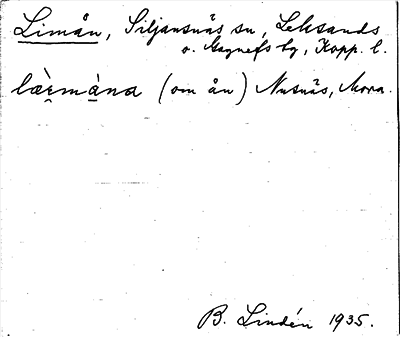 Limån, Siljansnäs sn, Leksands
o. Gagnefs tg, Kopp. l.
lærmàna (om ån) Nusnäs, Mora.
B. Lindén 1935.